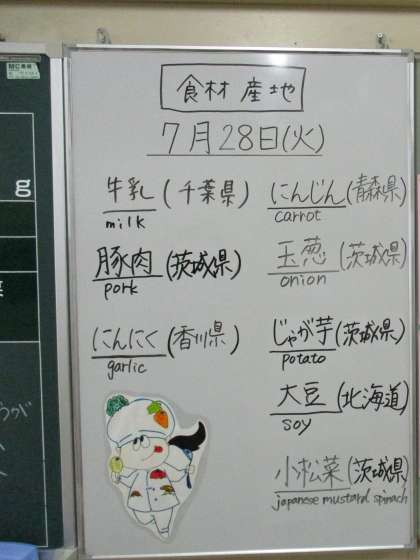 MC無線
食材 産地
7月28日(火)
牛乳(千葉県)
milk
豚肉(茨城県)
pork
にんにく(香川県)
garlic
にんじん(青森県)
carrot
玉葱(茨城県)
onion
じゃが芋(茨城県)
potato
大豆(北海道)
soy
小松菜(茨城県)
japanese mustard spinach
g